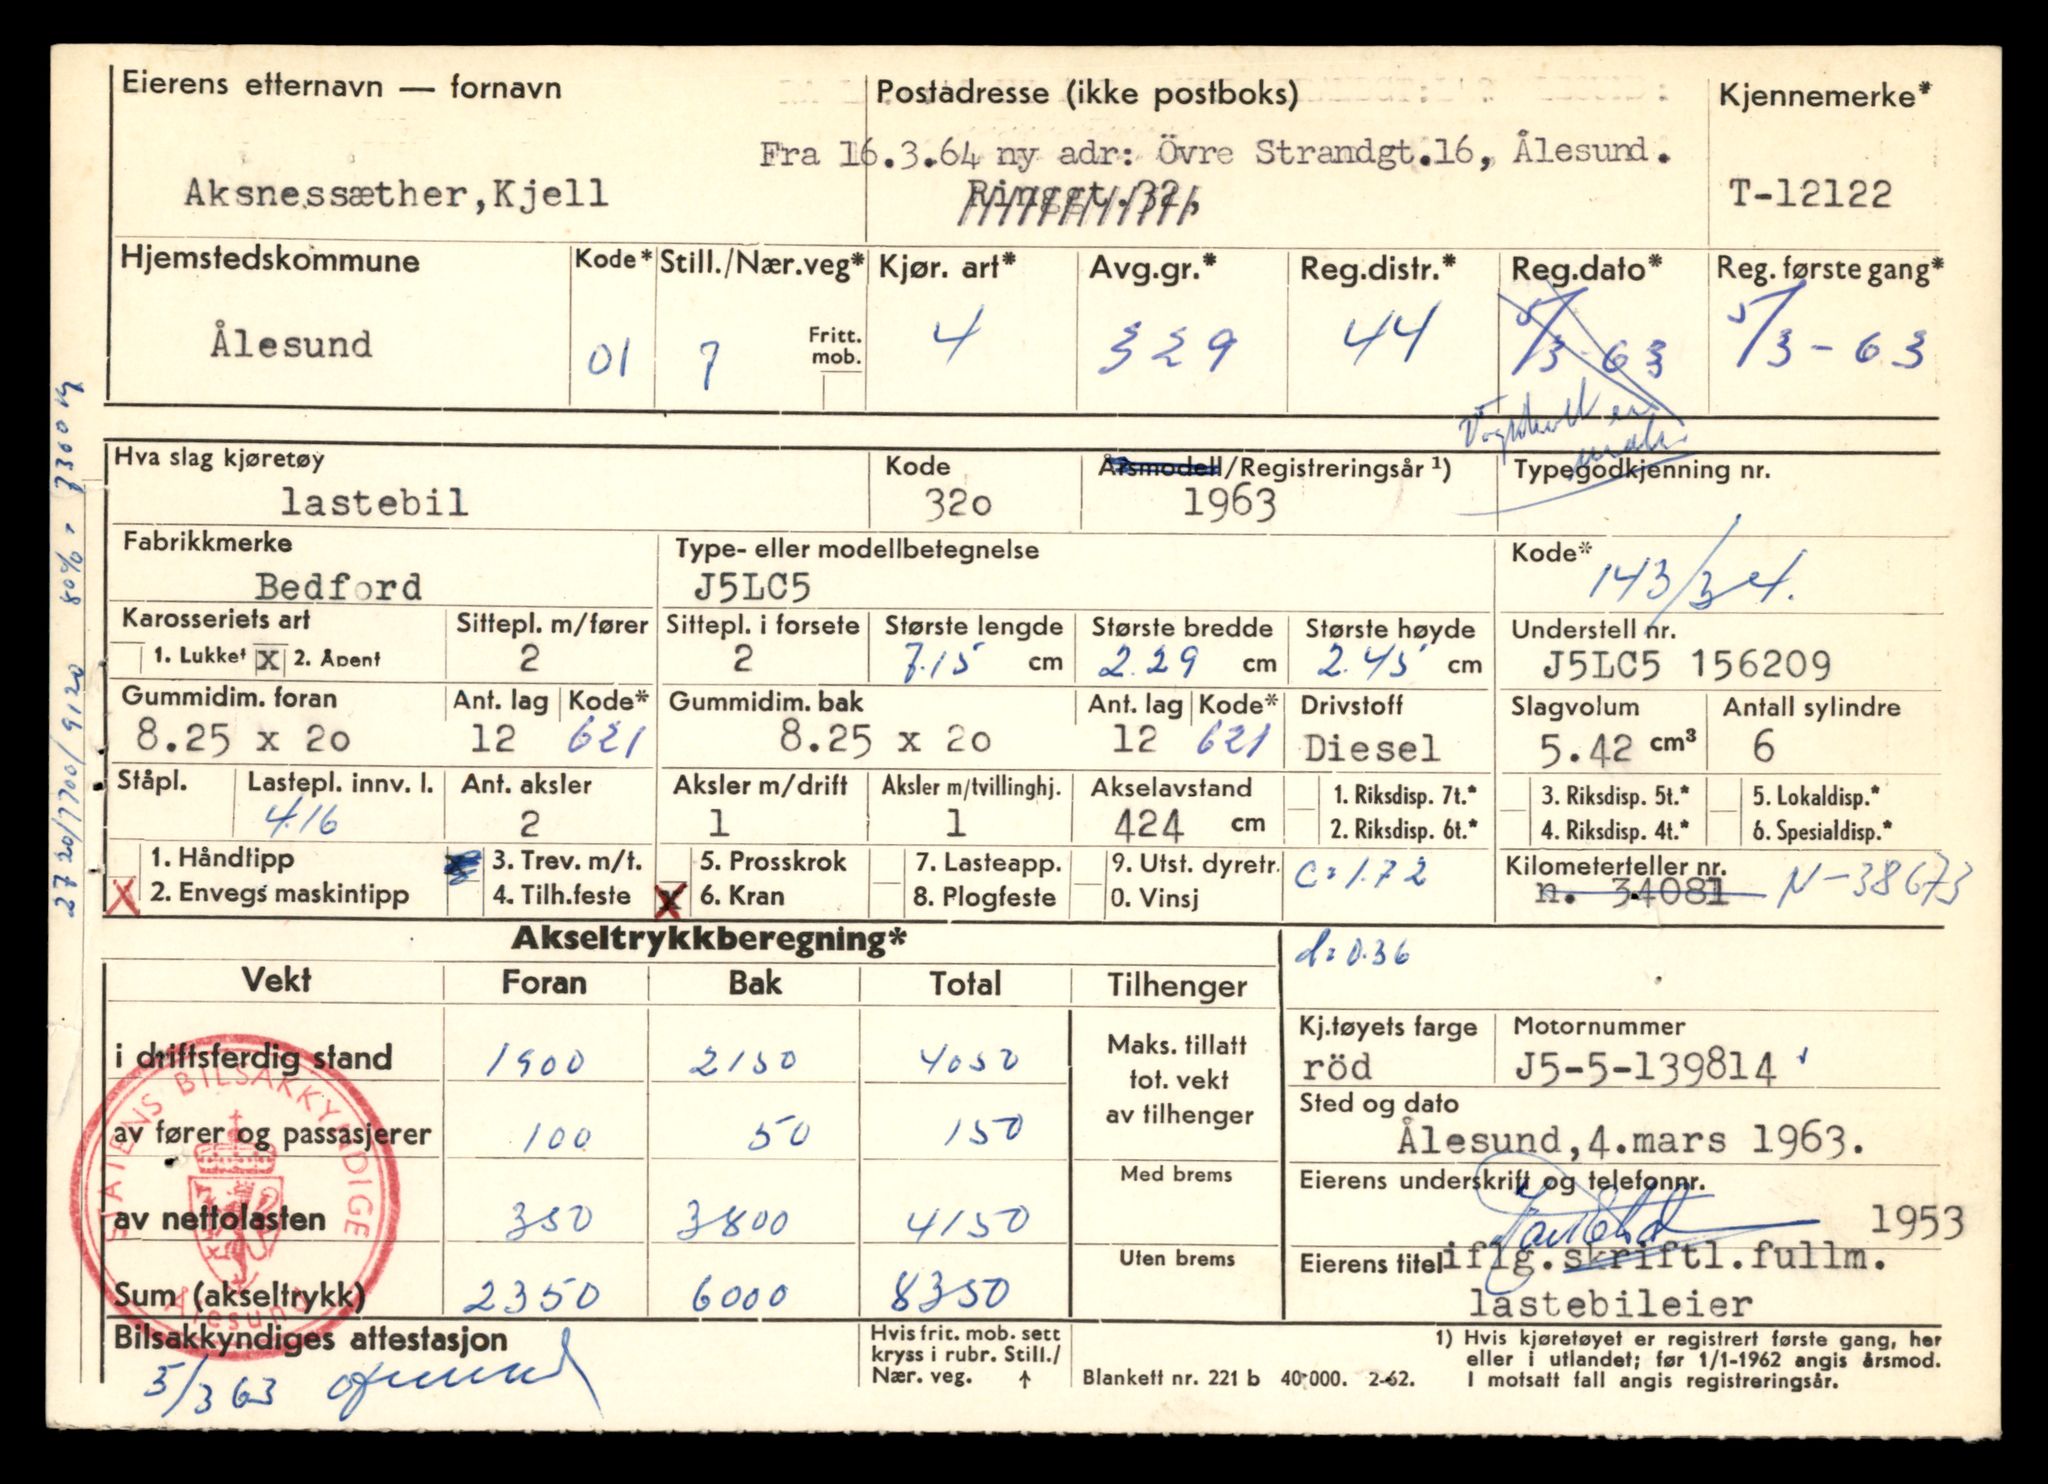 Eierens etternavn — fornavn Postadresse (ikke postboks) Kjennemerke*
Fra 16.3.64 ny adr: Övre Strandgt.16, Ålesund.
Aksnessæther,Kjell Ringgt.32, T-12122
Hjemstedskommune Kode* Still./Nær.veg* Kjør. art* Avg.gr.* Reg.distr.* Reg.dato* Reg. første gang*
Ålesund 01 7 Fritt. mob. 4 329 44 5/3-63 5/3-63
Hva slag kjøretøy Kode Årsmodell/Registreringsår ¹) Typegodkjenning nr.
lastebil 32o 1963
Fabrikkmerke Type- eller modellbetegnelse Kode*
Bedford J5LC5 143/34.
Karosseriets art Sittepl. m/fører Sittepl. i forsete Største lengde Største bredde Største høyde Understell nr.
1. Lukket x 2. Åpent 2 2 7.15 cm 2.29 cm 2.45 cm J5LC5 156209
Gummidim. foran Ant. lag Kode* Gummidim. bak Ant. lag Kode* Drivstoff Slagvolum Antall sylindre
8.25 x 2o 12 621 8.25 x 2o 12 621 Diesel 5.42 cm³ 6
Ståpl. Lastepl. innv. l. Ant. aksler Aksler m/drift Aksler m/tvillinghj. Akselavstand 1. Riksdisp. 7t.* 3. Riksdisp. 5t.* 5. Lokaldisp.*
4.16 2 1 1 424 cm 2. Riksdisp. 6t.* 4. Riksdisp. 4t.* 6. Spesialdisp.*
1. Håndtipp 3. Trev. m/t. 5. Prosskrok 7. Lasteapp. 9. Utst. dyretr. C=1.72 Kilometerteller nr.
X 2. Envegs maskintipp 4. Tilh.feste x 6. Kran 8. Plogfeste 0. Vinsj n. 34081 N-38673
Akseltrykkberegning* d=0.36
Vekt Foran Bak Total Tilhenger
i driftsferdig stand 1900 2150 4050 Maks. tillatt
tot. vekt
av tilhenger
Kj.tøyets farge Motornummer
röd J5-5-139814
av fører og passasjerer 100 50 150 Med brems
Sted og dato
Ålesund,4.mars 1963.
av nettolasten 350 3800 4150 Uten brems
Eierens underskrift og telefonnr.
1953
Eierens titel iflg.skriftl.fullm.
Sum (akseltrykk) 2350 6000 8350 lastebileier
Bilsakkyndiges attestasjon Hvis frit. mob. sett
kryss i rubr. Still./
Nær. veg. ↑
Blankett nr. 221 b 40 000. 2-62.
1) Hvis kjøretøyet er registrert første gang, her
eller i utlandet; før 1/1-1962 angis årsmod.
I motsatt fall angis registreringsår.
5/3 63
STATENS BILSAKKYNDIGE
Ålesund
2720/7700/9120 80% = 7300 kg